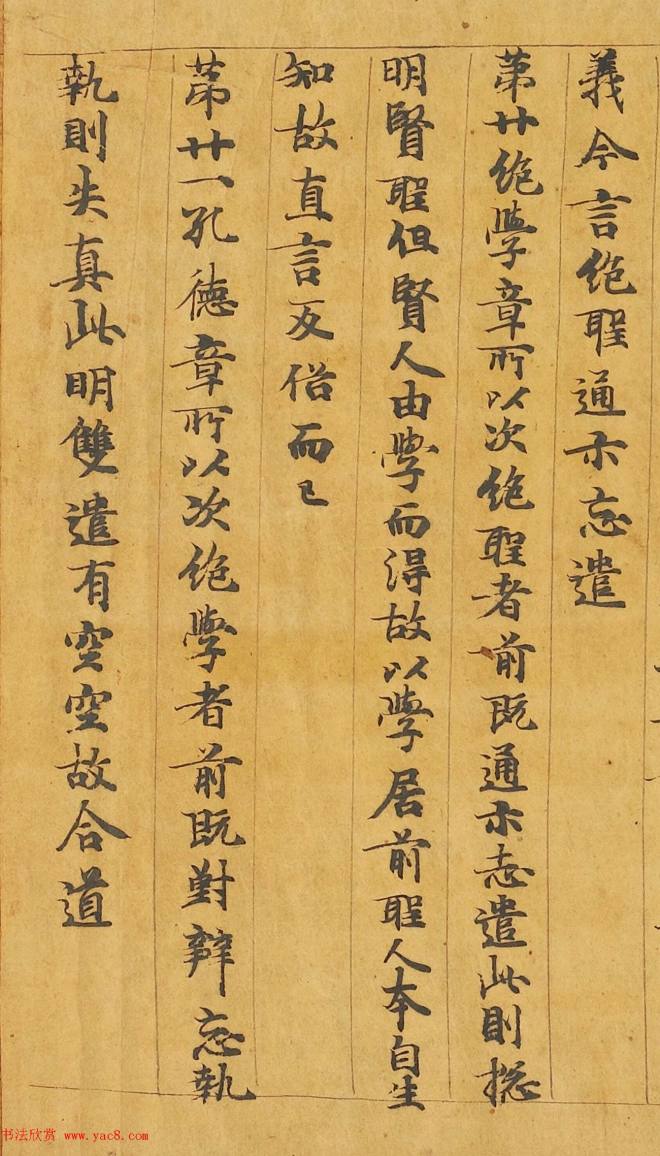 義今言絶聖通示忘遣
第廿絶學章所以次絶聖者前既通示忘遣此則揔
明賢聖但賢人由學而得故以學居前聖人本自生
知故直言反俗而已
第廿一孔德章所以次絶學者前既對辯忘執
執則失真此明雙遣有空空故合道
书法欣赏 www.yac8.com